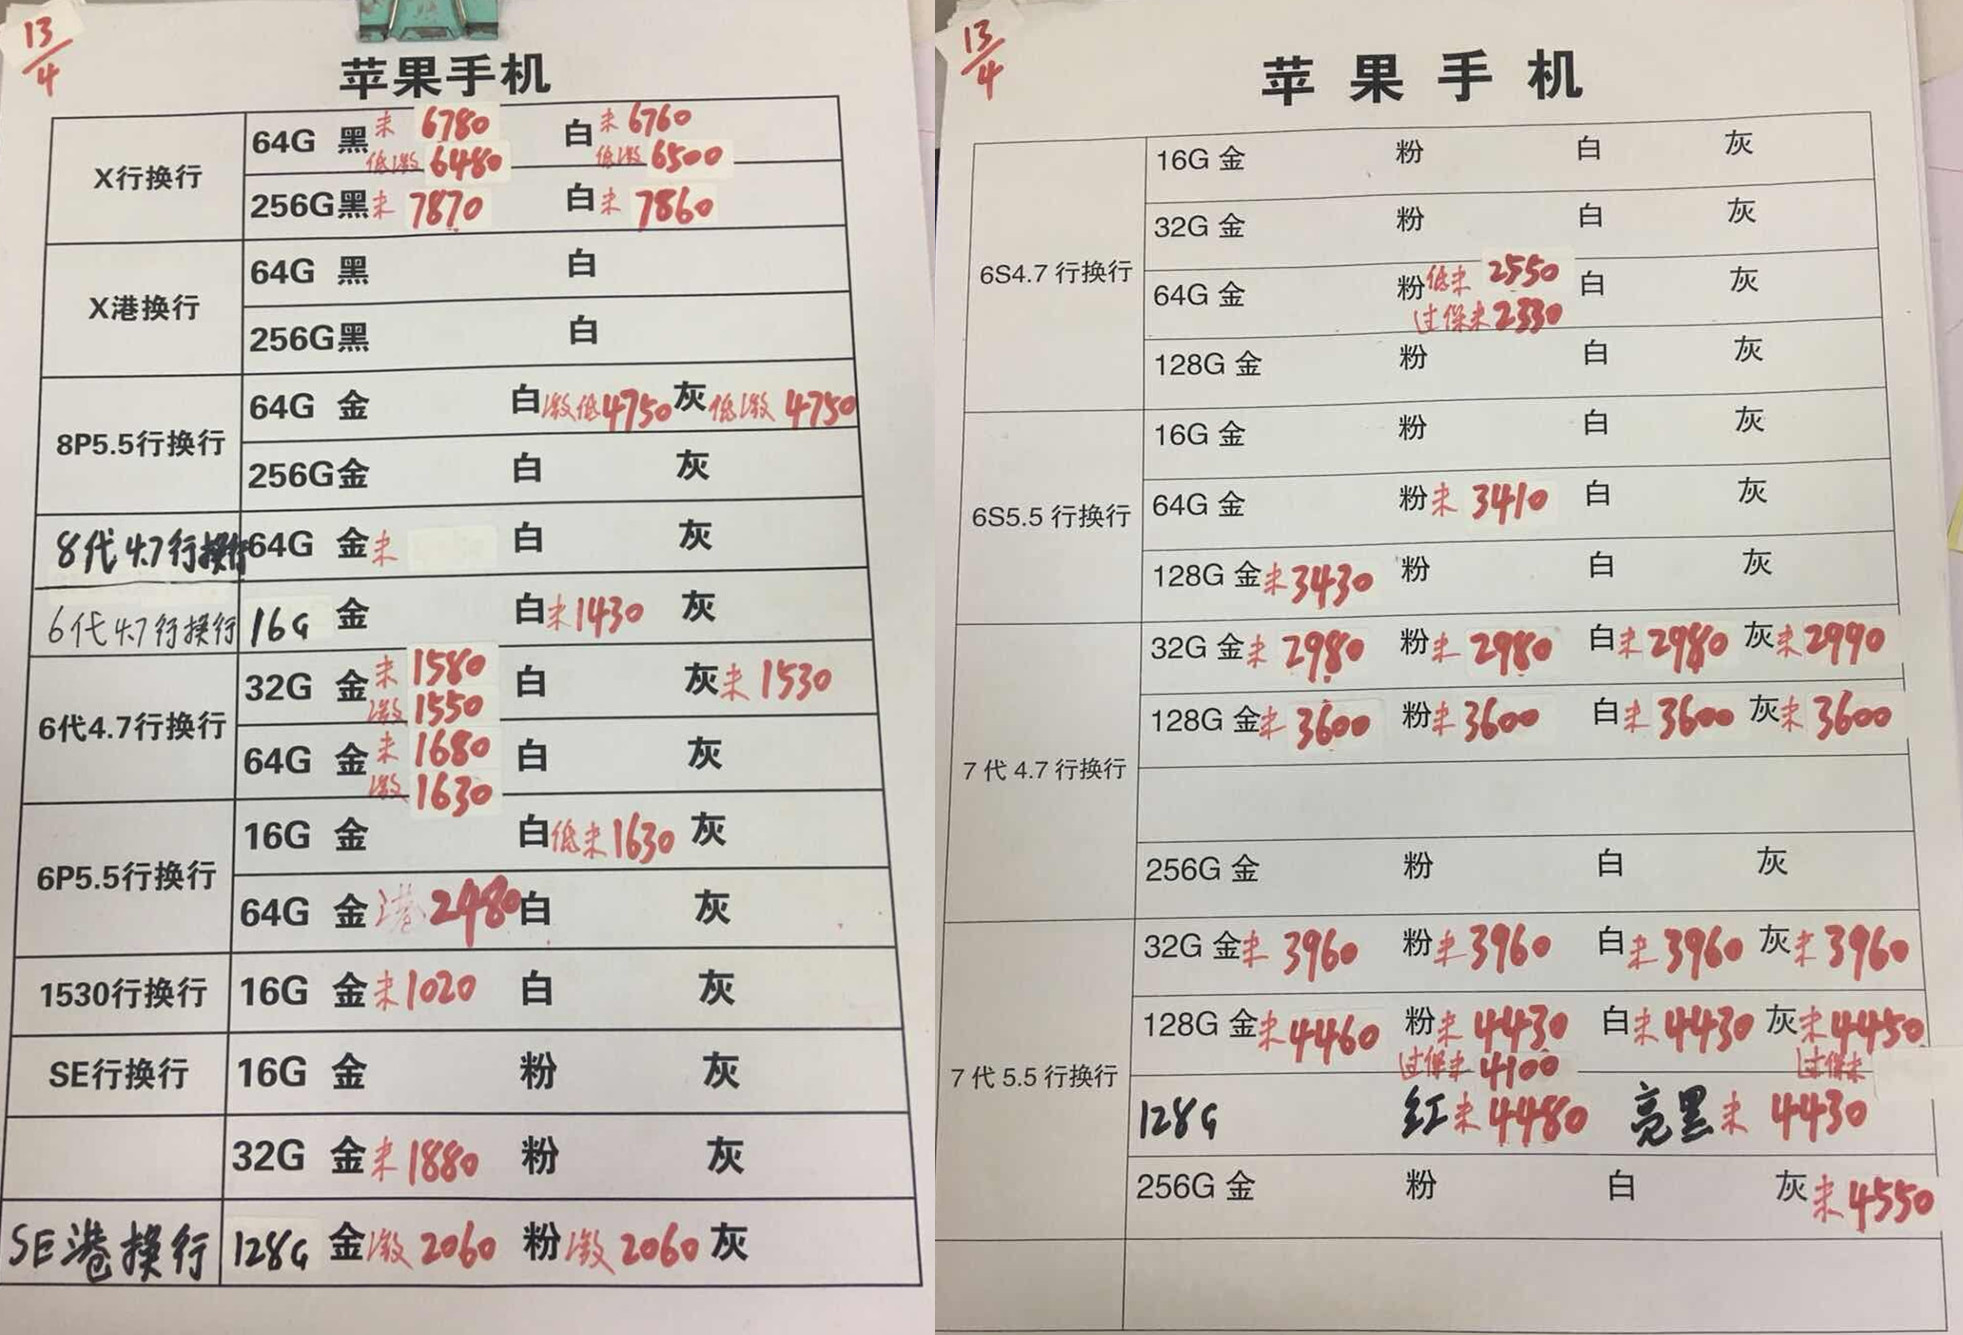 13/4
苹果手机
X行换行
64G 黑 未 6780 白 未 6760
低激 6480 低激 6500
256G 黑 未 7870 白 未 7860
X港换行
64G 黑 白
256G 黑 白
8P5.5行换行
64G 金 白 激低 4750 灰 低激 4750
256G 金 白 灰
8代4.7行换行 64G 金 未 白 灰
6代4.7行换行 16G 金 白 未 1430 灰
6代4.7行换行
32G 金 未 1580 白 灰 未 1530
激 1550
64G 金 未 1680 白 灰
激 1630
6P5.5行换行
16G 金 白 低未 1630 灰
64G 金 港 2480 白 灰
1530行换行 16G 金 未 1020 白 灰
SE行换行 16G 金 粉 灰
32G 金 未 1880 粉 灰
SE港换行 128G 金 激 2060 粉 激 2060 灰
13/4
苹果手机
6S4.7行换行
16G 金 粉 白 灰
32G 金 粉 白 灰
64G 金 粉 低未 2550 白 灰
过保未 2330
128G 金 粉 白 灰
6S5.5行换行
16G 金 粉 白 灰
64G 金 粉 未 3410 白 灰
128G 金 未 3430 粉 白 灰
7代4.7行换行
32G 金 未 2980 粉 未 2980 白 未 2980 灰 未 2990
128G 金 未 3600 粉 未 3600 白 未 3600 灰 未 3600
256G 金 粉 白 灰
7代5.5行换行
32G 金 未 3960 粉 未 3960 白 未 3960 灰 未 3960
128G 金 未 4460 粉 未 4430 白 未 4430 灰 未 4450
过保未 4100 过保未
128G 红 未 4480 亮黑 未 4430
256G 金 粉 白 灰 未 4550